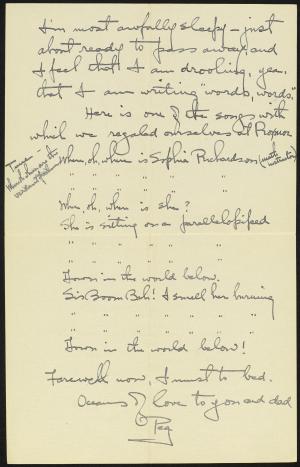 I'm most awfully sleepy – just
about ready to pass away, and
I feel that I am drooling, yea,
that I am writing "words, words."
Here is one of the songs with
which we regaled ourselves at
Tune –
Where, oh, where are the
verdant freshmen
Where, oh, where is Sophie Richardson (math instructor)
" " " " "
" " " " "
Where oh, where is she?
She is sitting on a parallelopiped
" " " " " "
" " " " " "
Down in the world below.
Sis Boom Bah! I smell her burning
" " " " " " "
" " " " " " "
Down in the world below!
Farewell now, I must to bed.
Oceans of love to you and dad
Peg